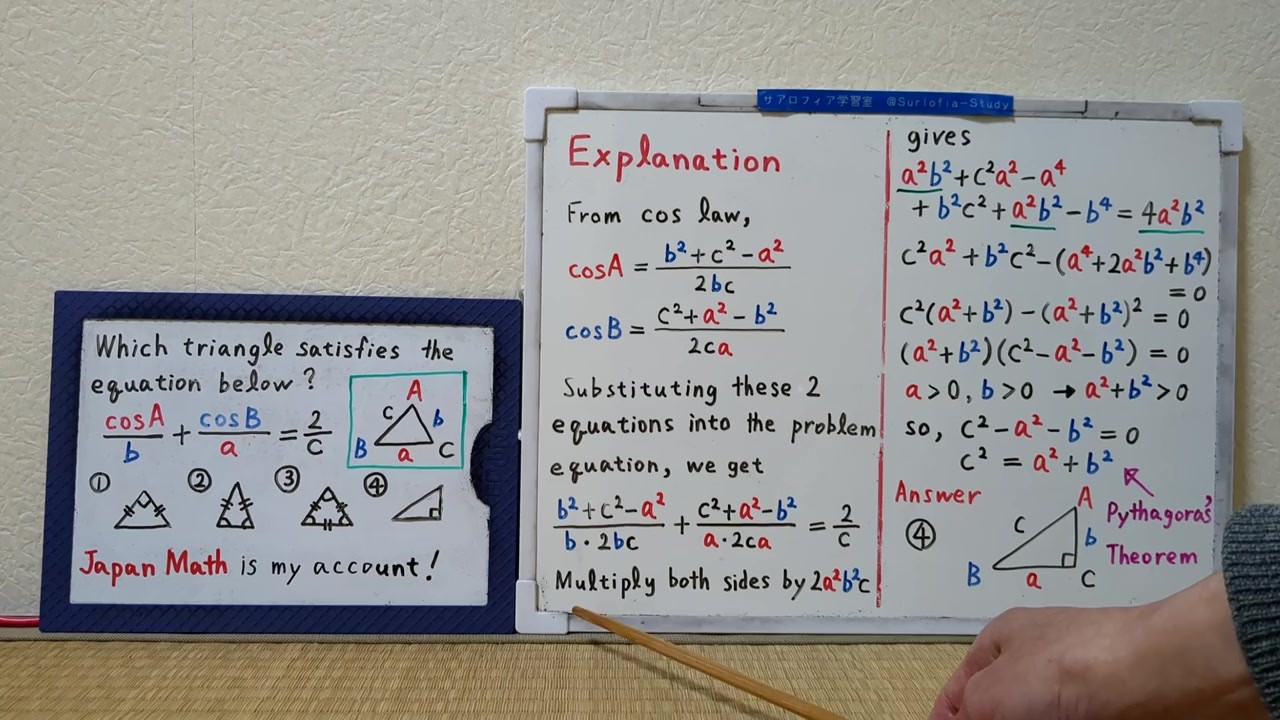 Which triangle satisfies the
equation below?
cosA/b + cosB/a = 2/c
A
c b
B a C
① ② ③ ④
Japan Math is my account!
サアロフィア学習室 @Surlofia-Study
Explanation
From cos law,
cosA = (b²+c²-a²)/2bc
cosB = (c²+a²-b²)/2ca
Substituting these 2
equations into the problem
equation, we get
(b²+c²-a²)/(b・2bc) + (c²+a²-b²)/(a・2ca) = 2/c
Multiply both sides by 2a²b²c
gives
a²b²+c²a²-a⁴
+b²c²+a²b²-b⁴=4a²b²
c²a²+b²c²-(a⁴+2a²b²+b⁴)
=0
c²(a²+b²)-(a²+b²)²=0
(a²+b²)(c²-a²-b²)=0
a>0, b>0 → a²+b²>0
so, c²-a²-b²=0
c² = a²+b²
Answer
④
A
c b
B a C
Pythagoras'
Theorem